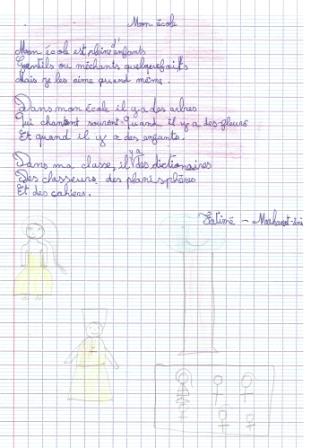 Mon école
Mon école est pleine d'enfants
Gentils ou méchants quelquefois
Mais je les aime quand même.
Dans mon école il y a des arbres
Qui chantent souvent quand il y a des fleurs
Et quand il y a des enfants.
Dans ma classe, il y a des dictionnaires
Des classeurs, des planisphères
Et des cahiers.